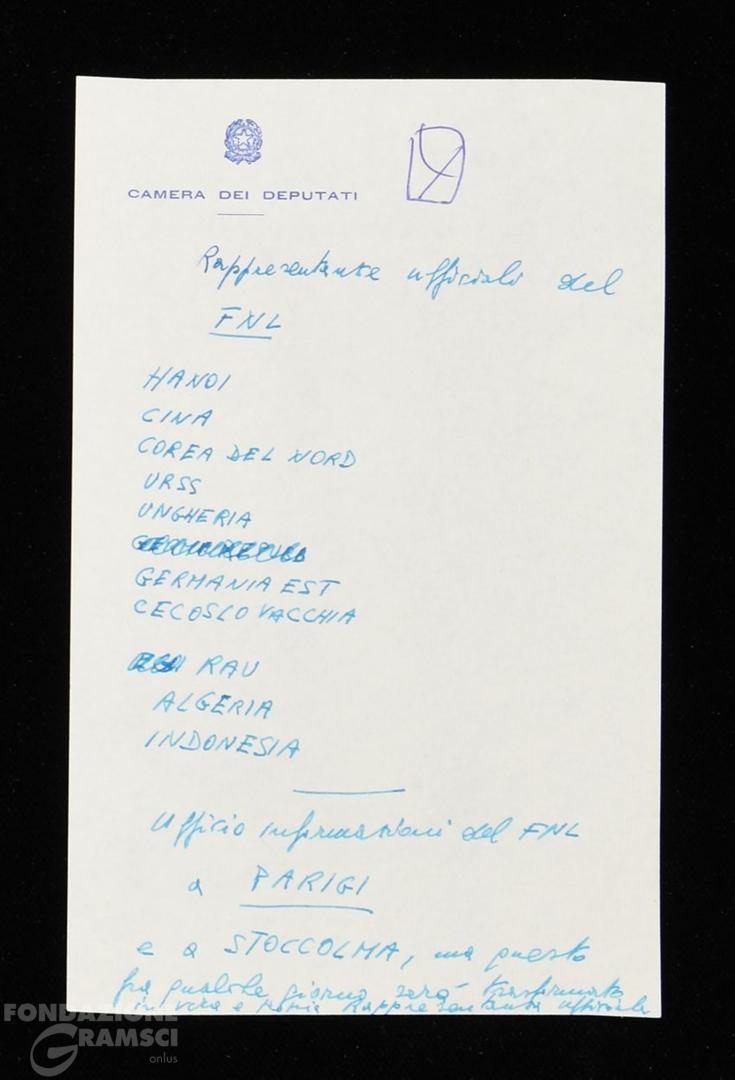 CAMERA DEI DEPUTATI
Rappresentanze ufficiali del
FNL
HANOI
CINA
COREA DEL NORD
URSS
UNGHERIA
GERMANIA EST
CECOSLOVACCHIA
RAU
ALGERIA
INDONESIA
Ufficio informazioni del FNL
a PARIGI
e a STOCCOLMA, ma questo
fra qualche giorno sarà trasformato
in vera e propria Rappresentanza ufficiale
FONDAZIONE
GRAMSCI
onlus